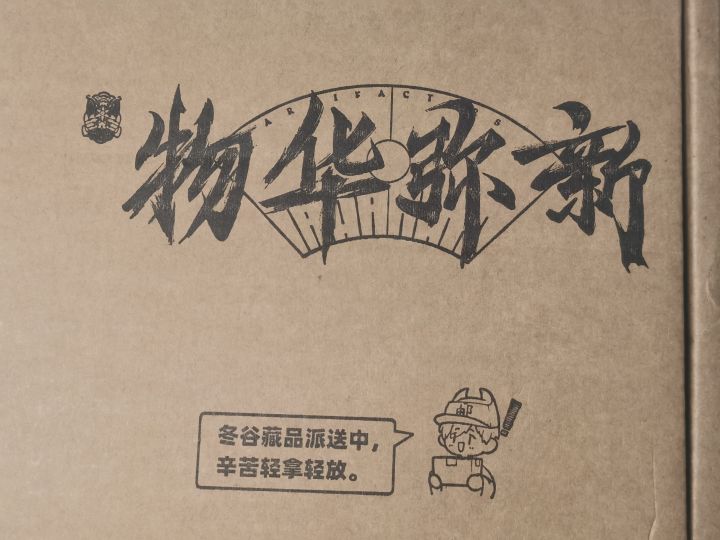 ARTIFACTERS
物华弥新
邮
冬谷藏品派送中，
辛苦轻拿轻放。